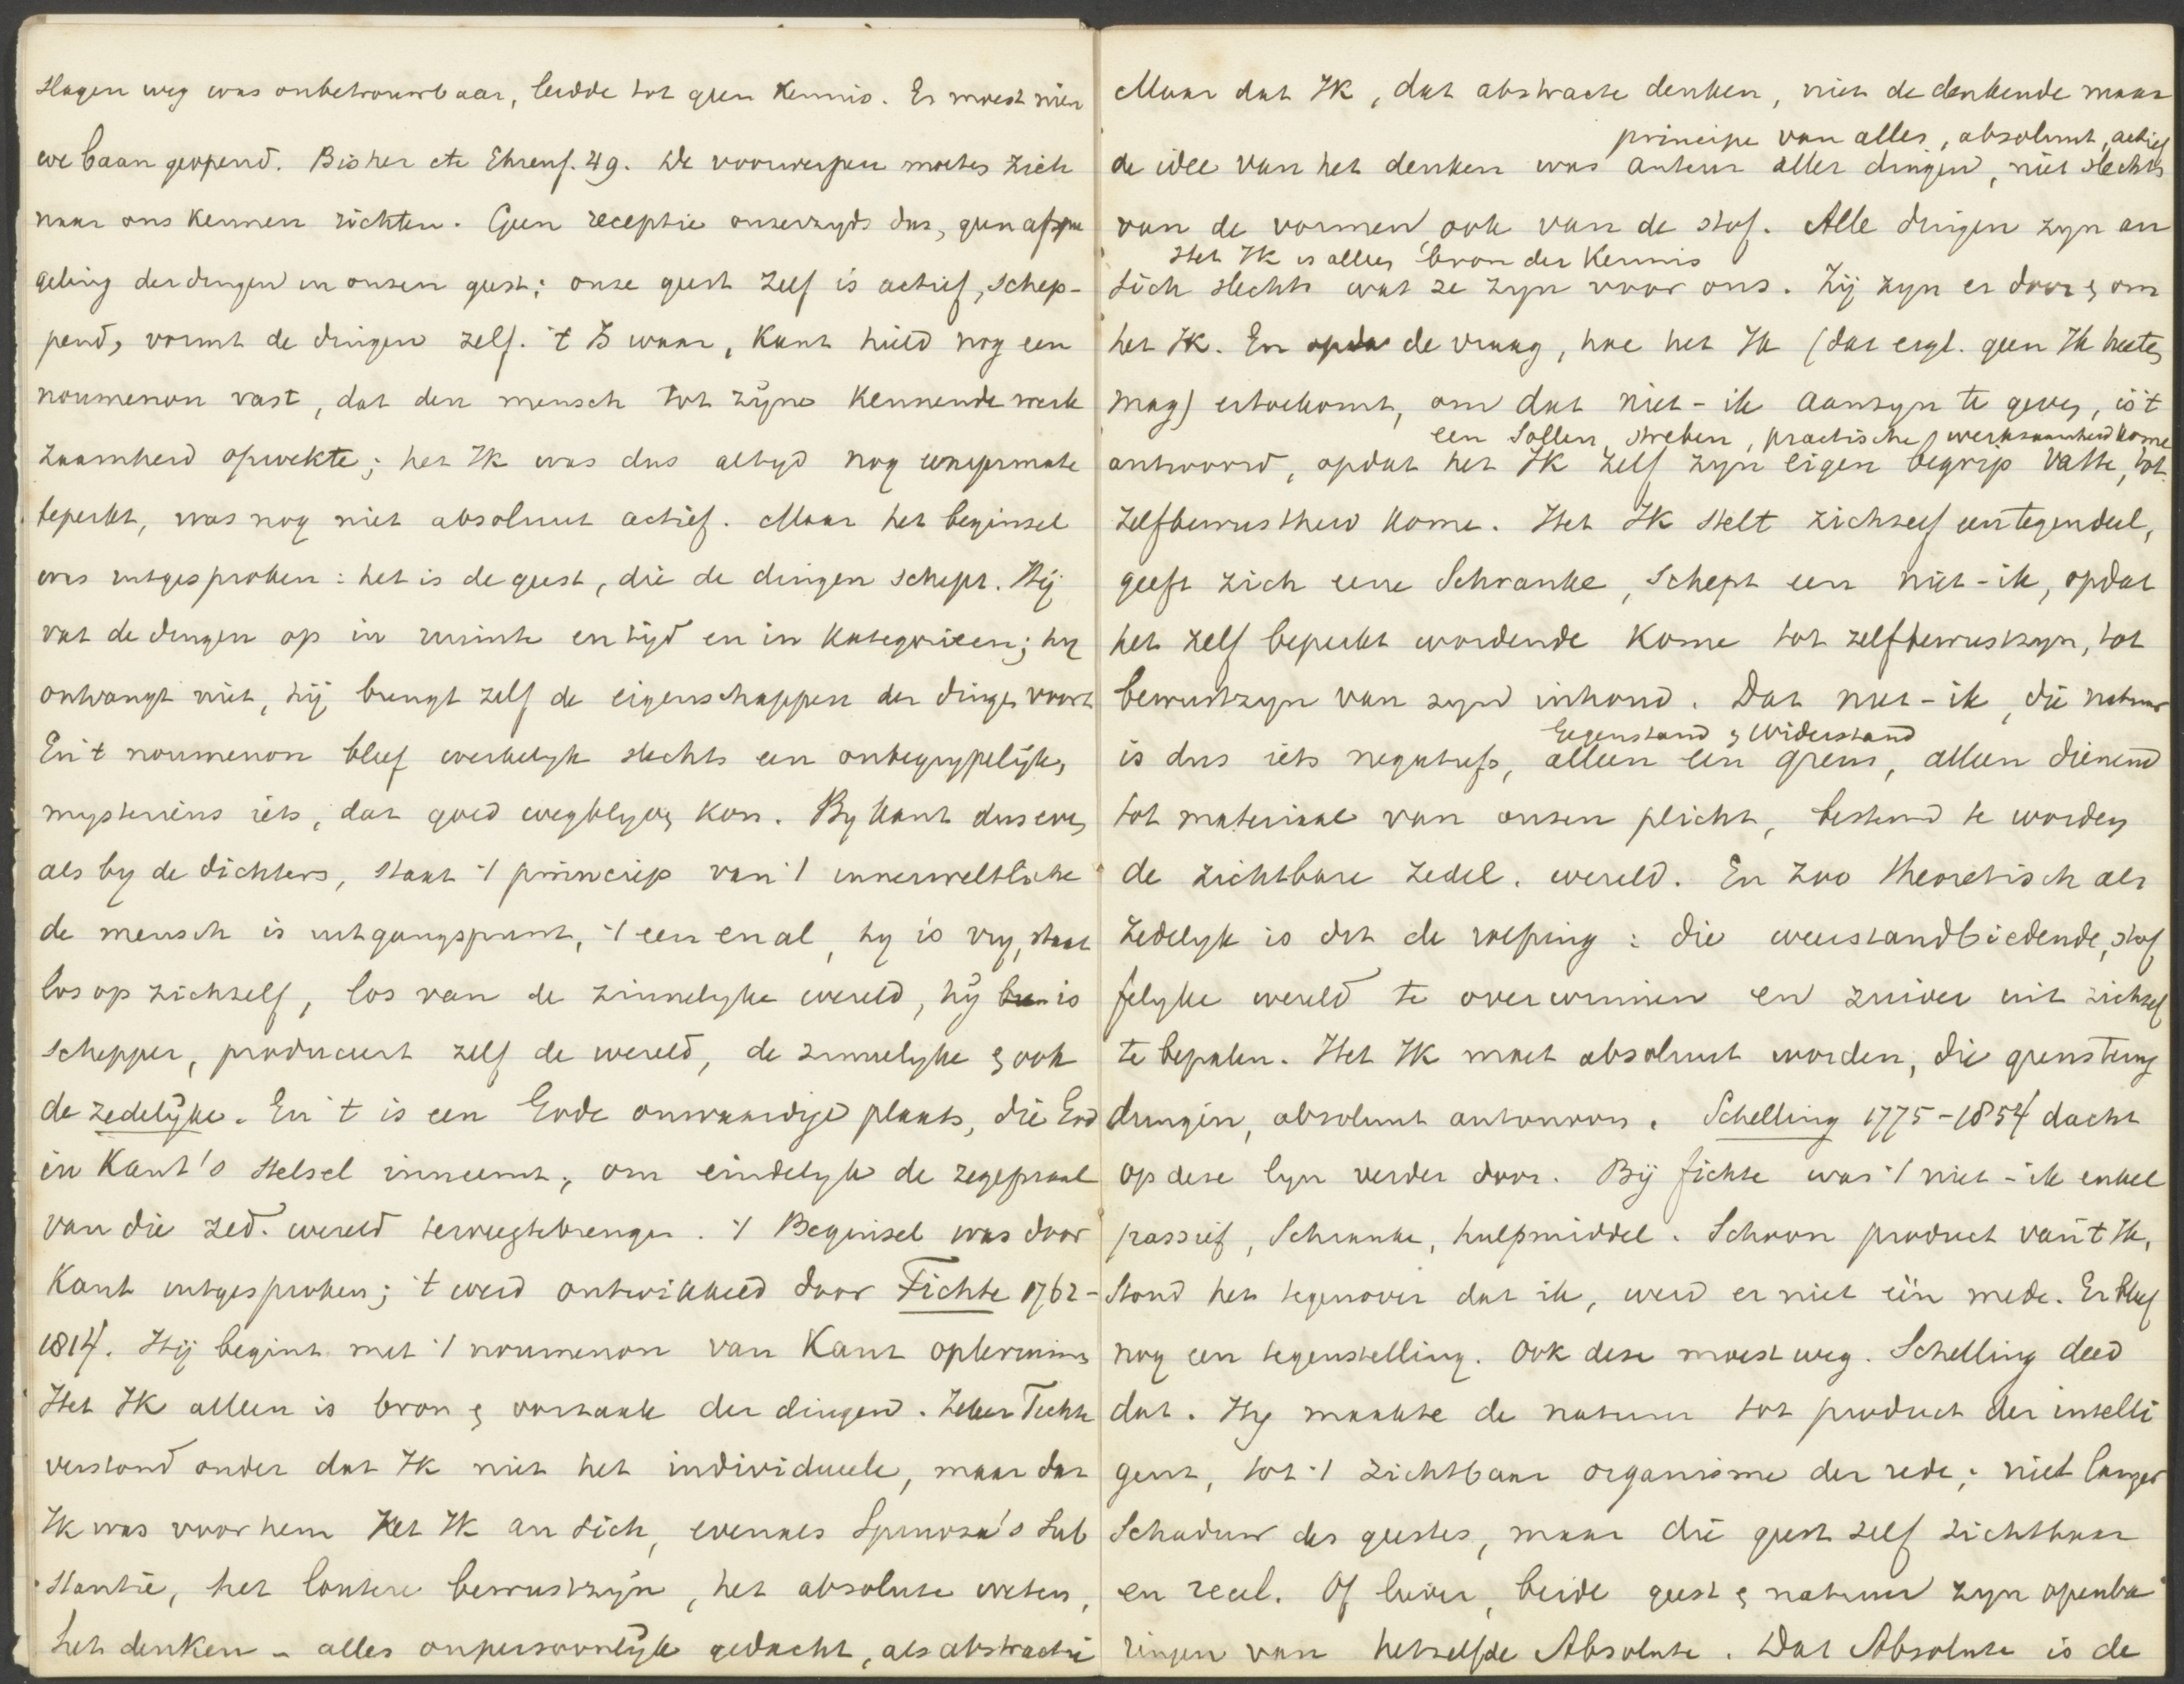 slagen weg was onbetrouwbaar, leidde tot geen kennis. Er moest nieu
we baan geopend. Bisher etc Ehrenf. 49. De voorwerpen moeten zich
naar ons kennen richten. Geen receptie onzerzyds dus, geen afspie
geling der dingen in onzen geest; onze geest zelf is actief, schep-
pend, vormt de dingen zelf. 't Is waar, Kant hield nog een
noumenon vast, dat den mensch tot zijne kennende werk
zaamheid opwekte; het Ik was dus altyd nog eenigermate
beperkt, was nog niet absoluut actief. Maar het beginsel
was uitgesproken: het is de geest, die de dingen schept. Hij
vat de dingen op in ruimte en tijd en in kategorieen; hy
ontvangt niet, hij brengt zelf de eigenschappen der dingen voort
En 't noumenon bleef werkelyk slechts een onbegrypelijk,
mysterieus iets, dat goed wegblyven kon. By Kant dus even
als by de dichters, staat 't principe van 't innerweltliche
de mensch is uitgangspunt, 't een en al, hy is vry, staat
los op zichzelf, los van de zinnelyke wereld, hij is
schepper, produceert zelf de wereld, de zinnelyke & ook
de zedelijke. En 't is een Gode onwaardige plaats, die God
in Kant's stelsel inneemt, om eindelyk de zegepraal
van die zed. wereld teweegtebrengen. 't Beginsel was door
Kant uitgesproken; 't werd ontwikkeld door Fichte 1762-
1814. Hij begint met 't noumenon van Kant opteruimen
Het Ik alleen is bron & oorzaak der dingen. Zeker Fichte
verstond onder dat Ik niet het individueele, maar dat
Ik was voor hem Het Ik an sich, evenals Spinoza's Sub
stantie, het loutere bewustzijn, het absolute weten,
het denken - alles onpersoonlijk gedacht, als abstractie
Maar dat Ik, dat abstracte denken, niet de denkende maar
principe van alles, absoluut, actief
de idee van het denken was auteur aller dingen, niet slechts
van de vormen ook van de stof. Alle dingen zyn an
Het Ik is aller bron der kennis
sich slechts wat ze zyn voor ons. Zij zyn er door & om
het Ik. En op de vraag, hoe het Ik (dat eigl. geen Ik heeten
mag) ertoekomt, om dat niet-ik aanzyn te geven, is 't
een Sollen, streben, practische werkzaamheid kome
antwoord, opdat het Ik zelf zyn eigen begrip vatte, tot
zelfbewustheid kome. Het Ik stelt zichzelf een tegendeel,
geeft zich eene Schranke, schept een niet-ik, opdat
het zelf beperkt wordende kome tot zelfbewustzyn, tot
bewustzyn van zyn inhoud. Dat niet-ik, die natuur
Gegenstand & Widerstand
is dus iets negatiefs, alleen een grens, alleen dienend
tot materiaal van onzen plicht, bestemd te worden
de zichtbare zedel. wereld. En zoo theoretisch als
zedelyk is dit de roeping: die weerstandbiedende, stof
felyke wereld te overwinnen en zuiver uit zichzelf
te bepalen. Het Ik moet absoluut worden, die grens terug
dringen, absoluut autonoom. Schelling 1775-1854 dacht
op deze lyn verder door. Bij Fichte was 't niet-ik enkel
passief, Schranke, hulpmiddel. Schoon product van 't Ik,
stond het tegenover dat ik, werd er niet één mede. Er bleef
nog een tegenstelling. Ook deze moest weg. Schelling deed
dat. Hy maakte de natuur tot product der intelli
gent, tot 't zichtbaar organisme der rede; niet langer
Schaduw des geestes, maar die geest zelf zichtbaar
en reeel. Of liever, beide geest & natuur zyn openba
ringen van hetzelfde Absolute. Dat Absolute is de